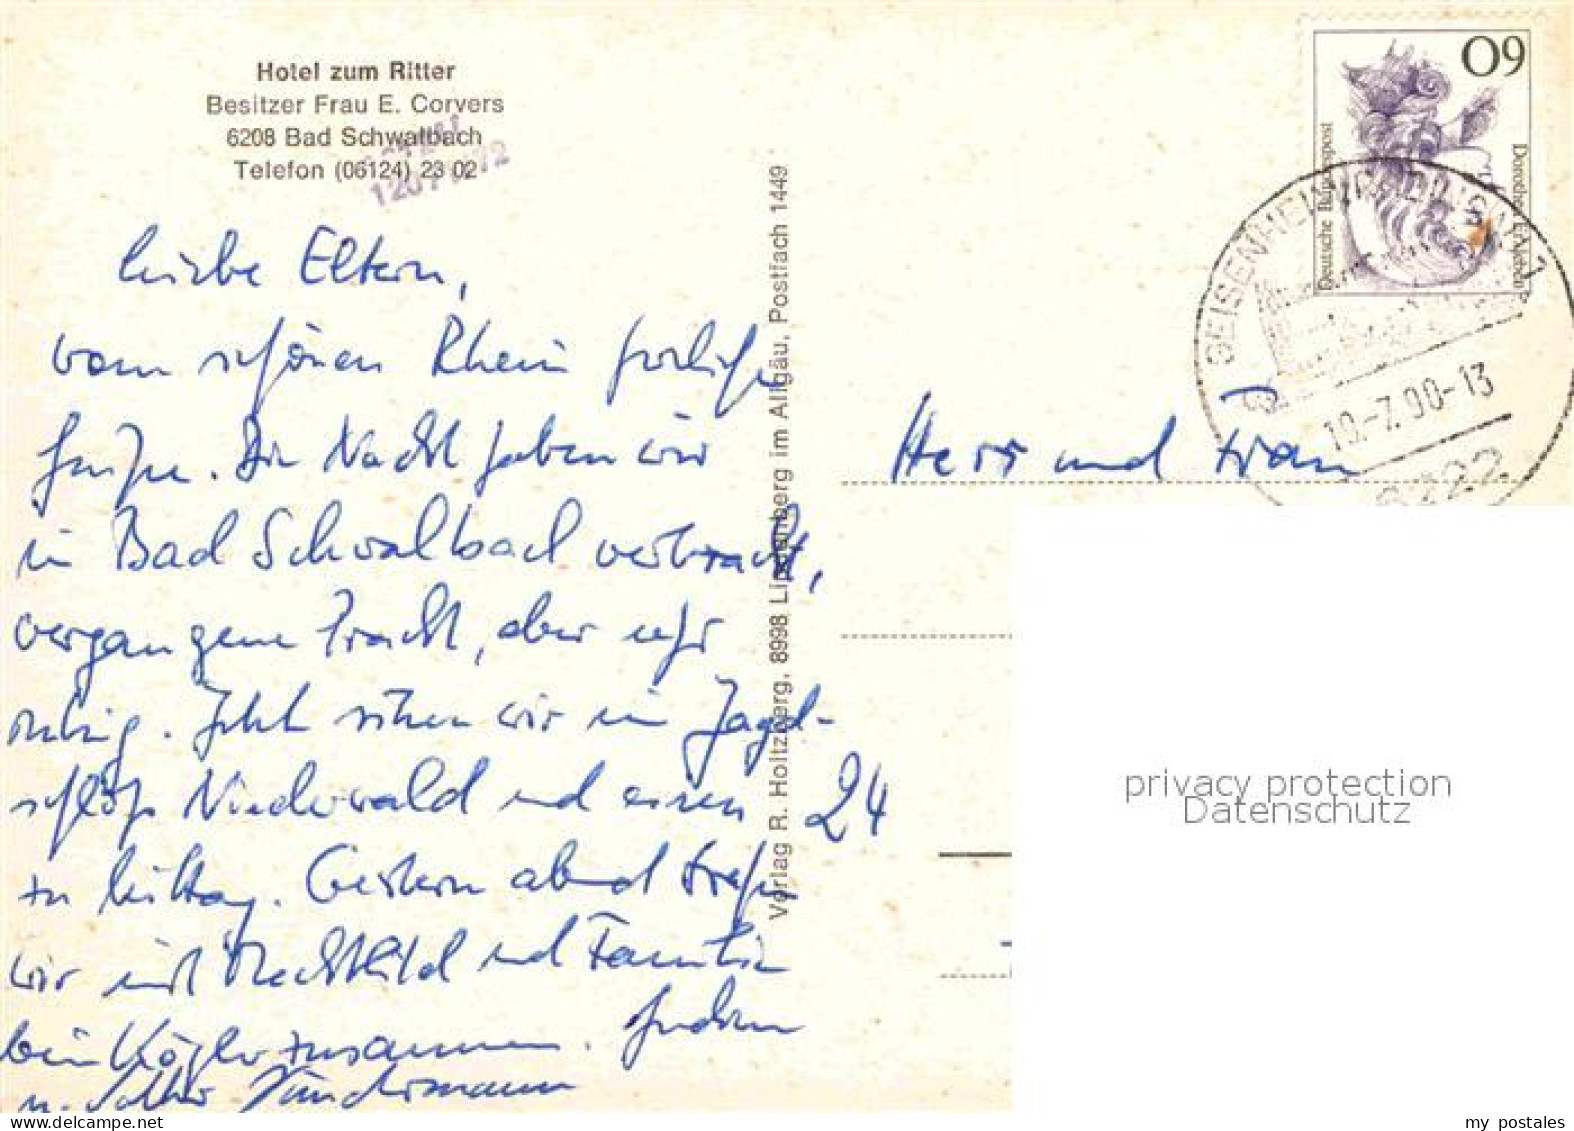 Hotel zum Ritter
Besitzer Frau E. Corvers
6208 Bad Schwalbach
Telefon (06124) 23 02
Liebe Eltern,
vom schönen Rhein herzliche
Grüße. Die Nacht haben wir
in Bad Schwalbach verbracht,
vergangene Pracht, aber sehr
ruhig. Jetzt sitzen wir im Jagd-
schloß Niederwald und essen
zu Mittag. Gestern abend trafen
wir mit Mechthild und Familie
beim Kögler zusammen.
Verlag R. Holtzberg, 8998 Lindenberg im Allgäu, Postfach 1449
60
Deutsche Bundespost
Dorothea Erxleben
GEISENHEIM
10.-7.90-13
6222
Herr und Frau
24
privacy protection
Datenschutz
my postales